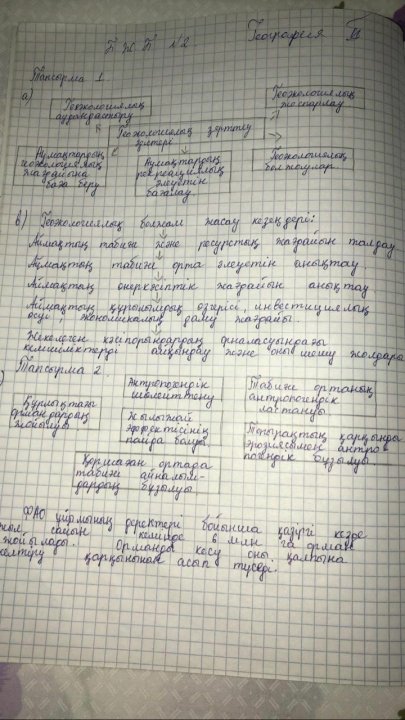 БЖБ №2 География
Тапсырма 1.
а)
Геоэкологиялық
аудандастыру
Геоэкологиялық
жоспарлау
Геоэкологиялық зерттеу
әдістері
Аумақтардың
геоэкологиялық
жағдайына
баға беру
Аумақтардың
рекреациялық
әлеуетін
бағалау.
Геоэкологиялық
болжаулар.
в) Геоэкологиялық болжам жасау кезеңдері:
Аймақтың табиғи және ресурстық жағдайын талдау
Аймақтың табиғи орта әлеуетін анықтау.
Аймақтың өнеркәсіптік жағдайын анықтау
Аймақтың құрылымдық өзгерісі, инвестициялық
өсуі, экономикалық даму жағдайы.
Жекелеген кәсіпорындардың орналасуындағы
кемшіліктерді айқындау және оны шешу жолдары
Тапсырма 2.
Құрлықтағы
ормандардың
жойылуы
Антропогендік
шөлейттену
Табиғи ортаның
антропогендік
ластануы
Жылыжай
эффектісінің
пайда болуы
Топырақтың қарқынды
эрозиясымен антро-
погендік бұзылуы
Қоршаған ортада
табиғи айналым-
дардың бұзылуы
ФАО ұйрмының деректері бойынша қазіргі кезде
жыл сайын кемінде 6 млн га орман
жойылады. Орманды кесу оны қалпына
келтіру қарқынынан асып түседі.